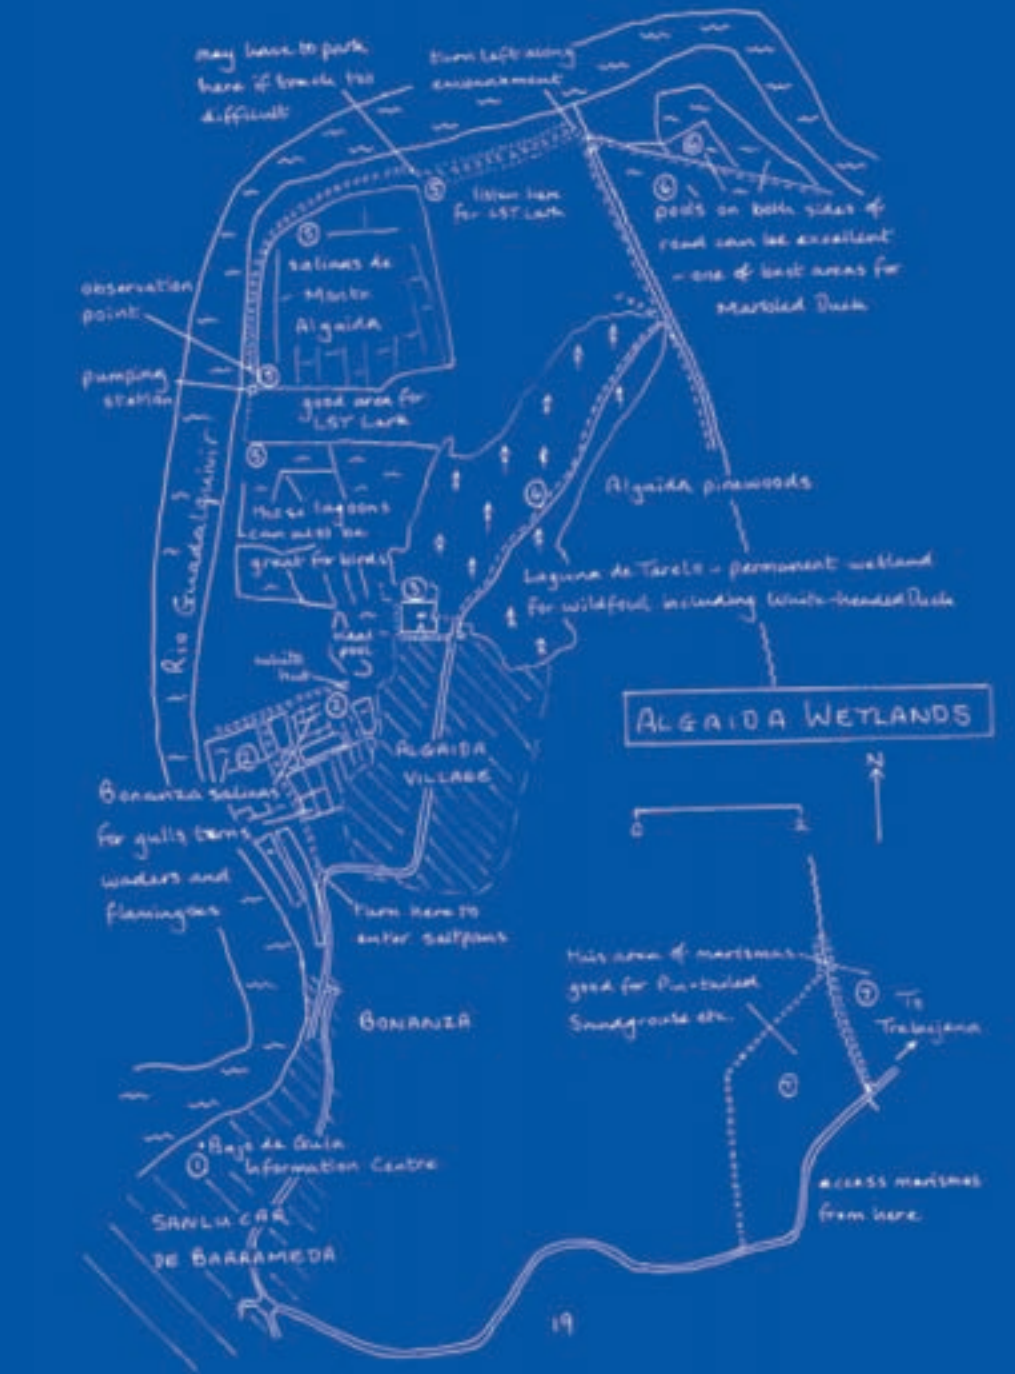 may have to park
here if track too
difficult
turn left along
embankment
5
listen here
for LST Lark
6
6
pools on both sides of
road can be excellent
- one of best areas for
Marbled Duck
5
salinas de
Monte
Algaida
observation
point
pumping
station
5
good area for
LST Lark
5
these lagoons
can also be
great for birds
Rio Guadalquivir
4
Algaida pinewoods
Laguna de Tarelo - permanent wetland
for wildfowl including White-headed Duck
3
near
pool
white
hut
2
2
ALGAIDA WETLANDS
N
0
ALGAIDA
VILLAGE
Bonanza salinas
for gulls terns
waders and
flamingoes
turn here to
enter saltpans
BONANZA
this area of marismas
good for Pin-tailed
Sandgrouse etc.
7
To
Trebujena
7
Bajo de Guia
Information Centre
1
access marismas
from here
SANLUCAR
DE BARRAMEDA
19